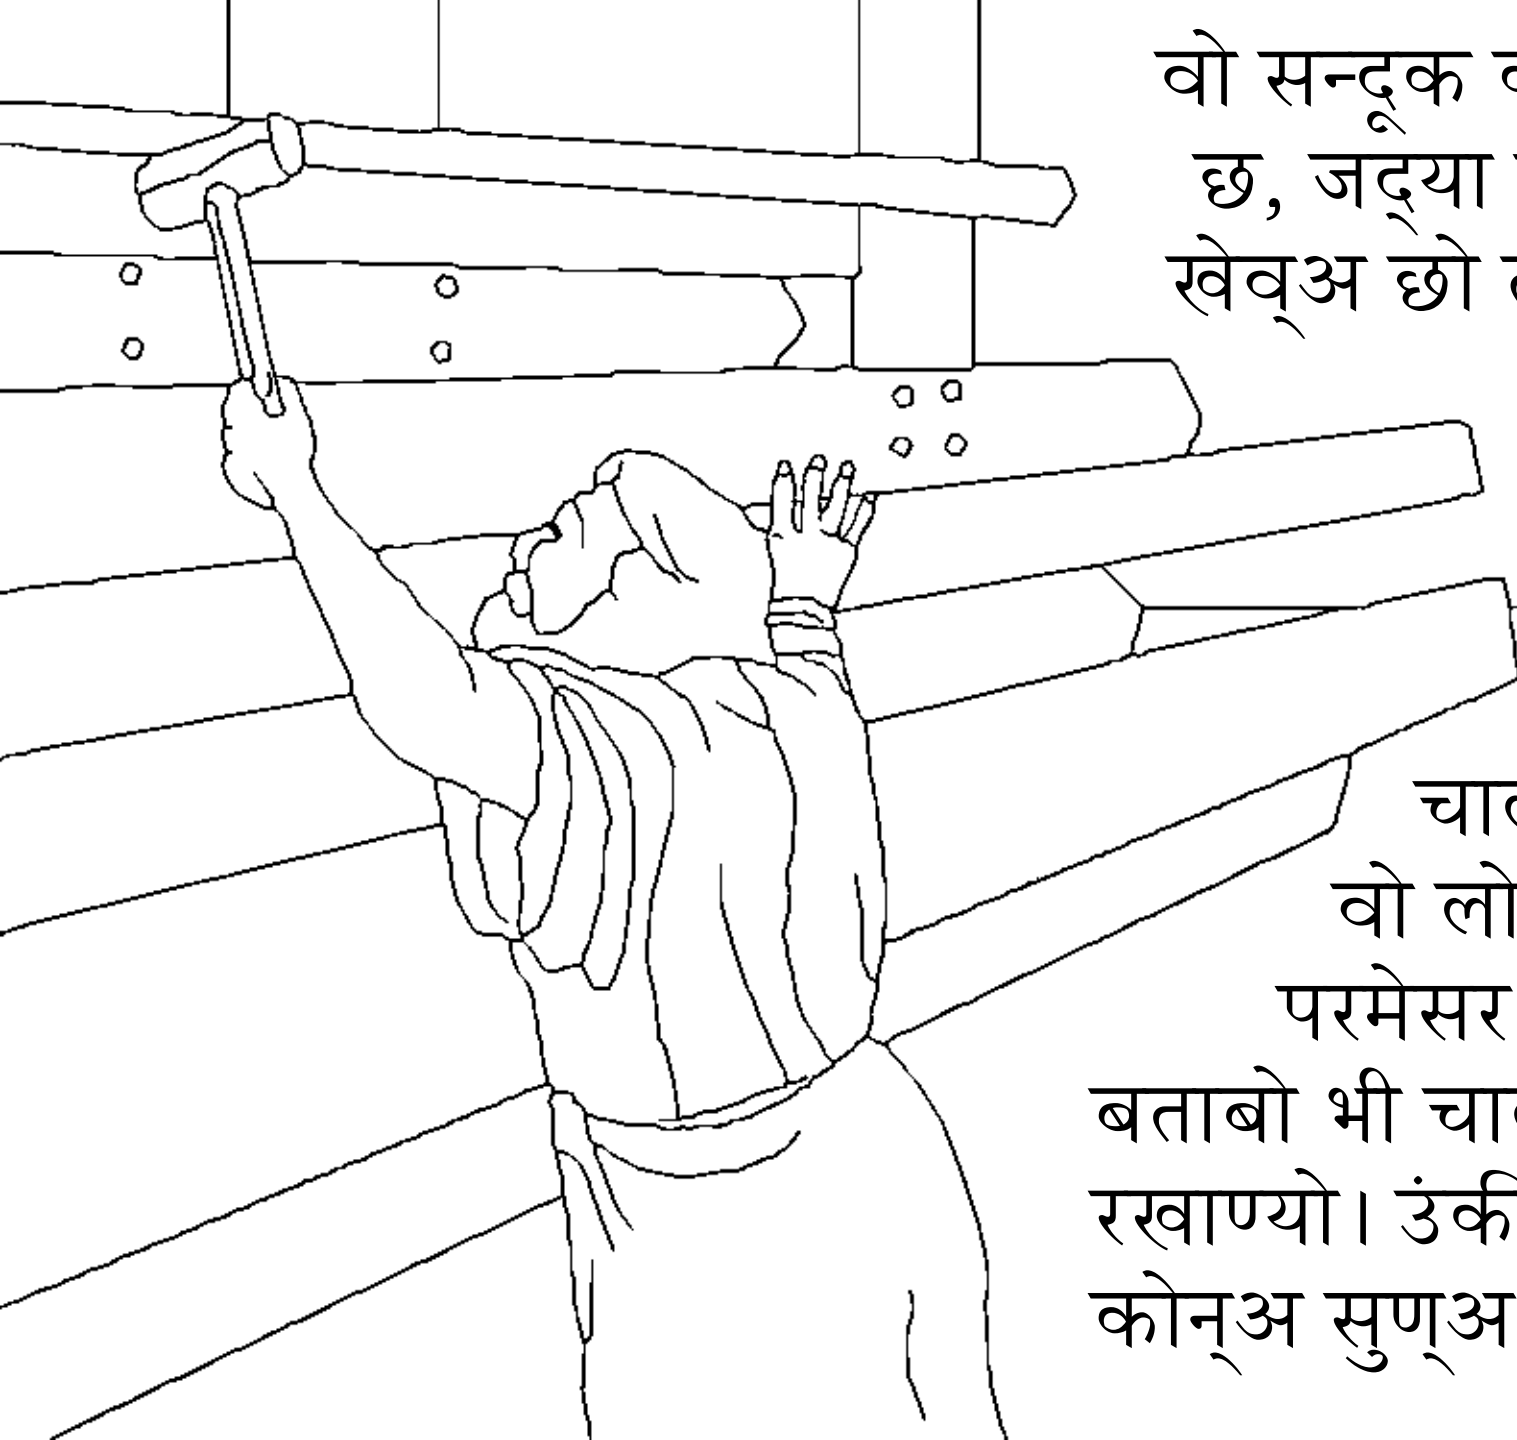 वो सन्दूक
छ, जद्‌या
खेव्अ छो
वो
परमेसर
बताबो भी
रखाण्यो। उंकी
कोन्अ सुण्अ